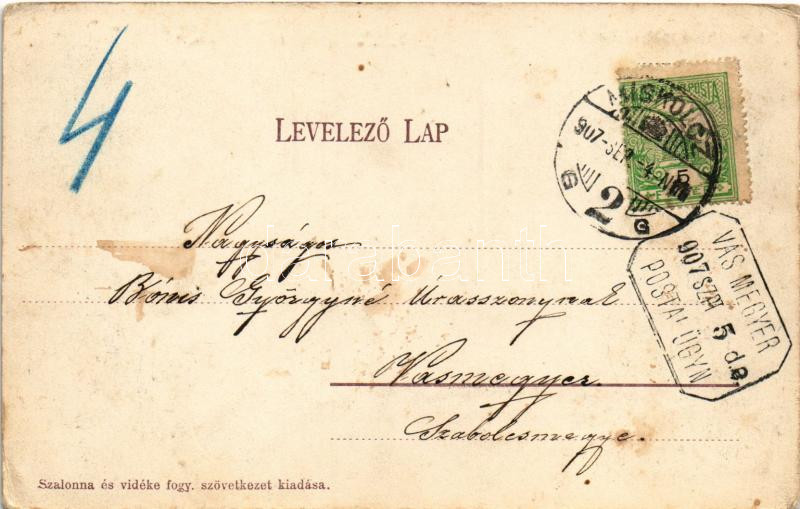 4
LEVELEZŐ LAP
POSTA
5
MISKOLC
907-SEP-4-N
2
G G
VÁS MEGYER
907 SZPT 5 d.e.
POSTAI ÜGYN
Nagyságos
Bónis Györgyné Úrasszonynak
Vasmegyer
Szabolcsmegye.
Szalonna és vidéke fogy. szövetkezet kiadása.